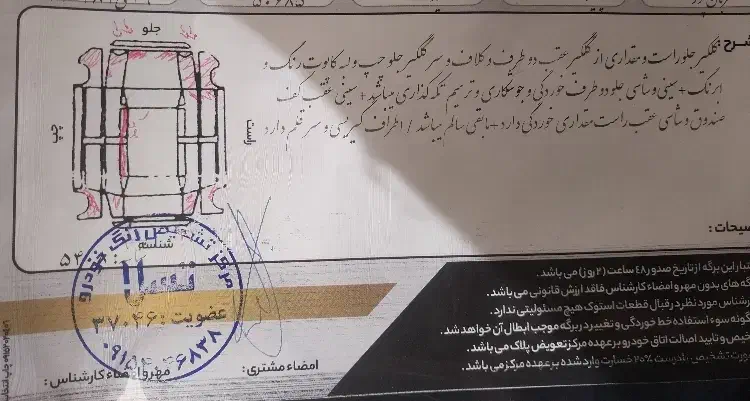 ۵۰۶۸۵
شرح: گلگیر جلو راست و مقداری از گلگیر عقب دو طرف و کلاف و سر گلگیر جلو چپ و لبه کاپوت رنگ و
ابرنگ + سینی و شاسی جلو دو طرف خوردگی و جوشکاری و ترمیم تکه گذاری میباشد + سینی عقب کف
صندوق و شاسی عقب راست مقداری خوردگی دارد + مابقی سالم میباشد / اطراف گیربکس و سر قلم دارد
جلو
چپ
راست
شناسه
۵۴
مرکز تشخیص رنگ خودرو
عضویت: ۳۷۰۴۶
امضاء مشتری:
مهر و امضاء کارشناس:
ضیحات:
تبار این برگه از تاریخ صدور ۴۸ ساعت (۲ روز) می باشد.
گه های بدون مهر و امضاء کارشناس فاقد ارزش قانونی می باشد.
رشناس مورد نظر در قبال قطعات استوک هیچ مسئولیتی ندارد.
گونه سوء استفاده خط خوردگی و تغییر در برگه موجب ابطال آن خواهد شد.
خیص و تایید اصالت اتاق خودرو بر عهده مرکز تعویض پلاک می باشد.
ورت تشخیص نادرست ۲۵% خسارت وارد شده بر عهده مرکز می باشد.